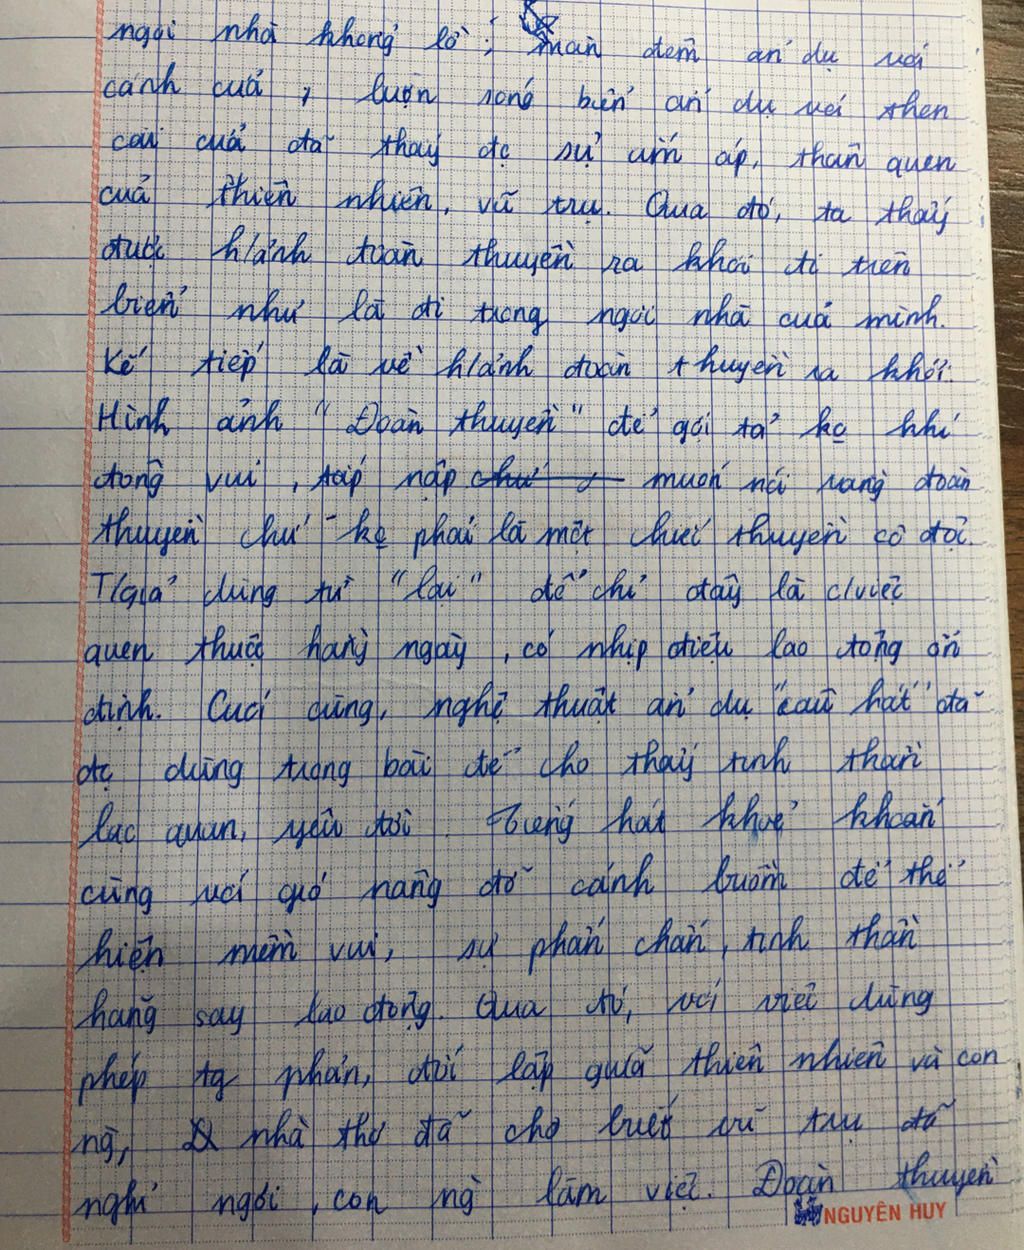 ngôi nhà khổng lồ; màn đêm ẩn dụ với
cánh cửa, lượn sóng biển ẩn dụ với then
cài cửa đã thấy đc sự ấm áp, thân quen
của thiên nhiên, vũ trụ. Qua đó, ta thấy
được h/ảnh đoàn thuyền ra khơi đi trên
biển như là đi trong ngôi nhà của mình.
Kế tiếp là về h/ảnh đoàn thuyền ra khơi.
Hình ảnh "Đoàn thuyền" để gợi tả ko khí
đông vui, tấp nập muốn nói rằng đoàn
thuyền chứ ko phải là một chiếc thuyền cô đơn.
T/giả dùng từ "lại" để chỉ đây là c/việc
quen thuộc hằng ngày, có nhịp điệu lao động ổn
định. Cuối cùng, nghệ thuật ẩn dụ "câu hát" đã
đc dùng trong bài để cho thấy tinh thần
lạc quan, yêu đời. Tiếng hát khoẻ khoắn
cùng với gió nâng đỡ cánh buồm để thể
hiện niềm vui, sự phấn chấn, tinh thần
hăng say lao động. Qua đó, với việc dùng
phép tg phản, đối lập giữa thiên nhiên và con
ng, nhà thơ đã cho biết vũ trụ đã
nghỉ ngơi, con ng làm việc. Đoàn thuyền
NGUYÊN HUY